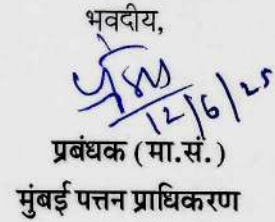 भवदीय,
12/6/25
प्रबंधक (मा.सं.)
मुंबई पत्तन प्राधिकरण